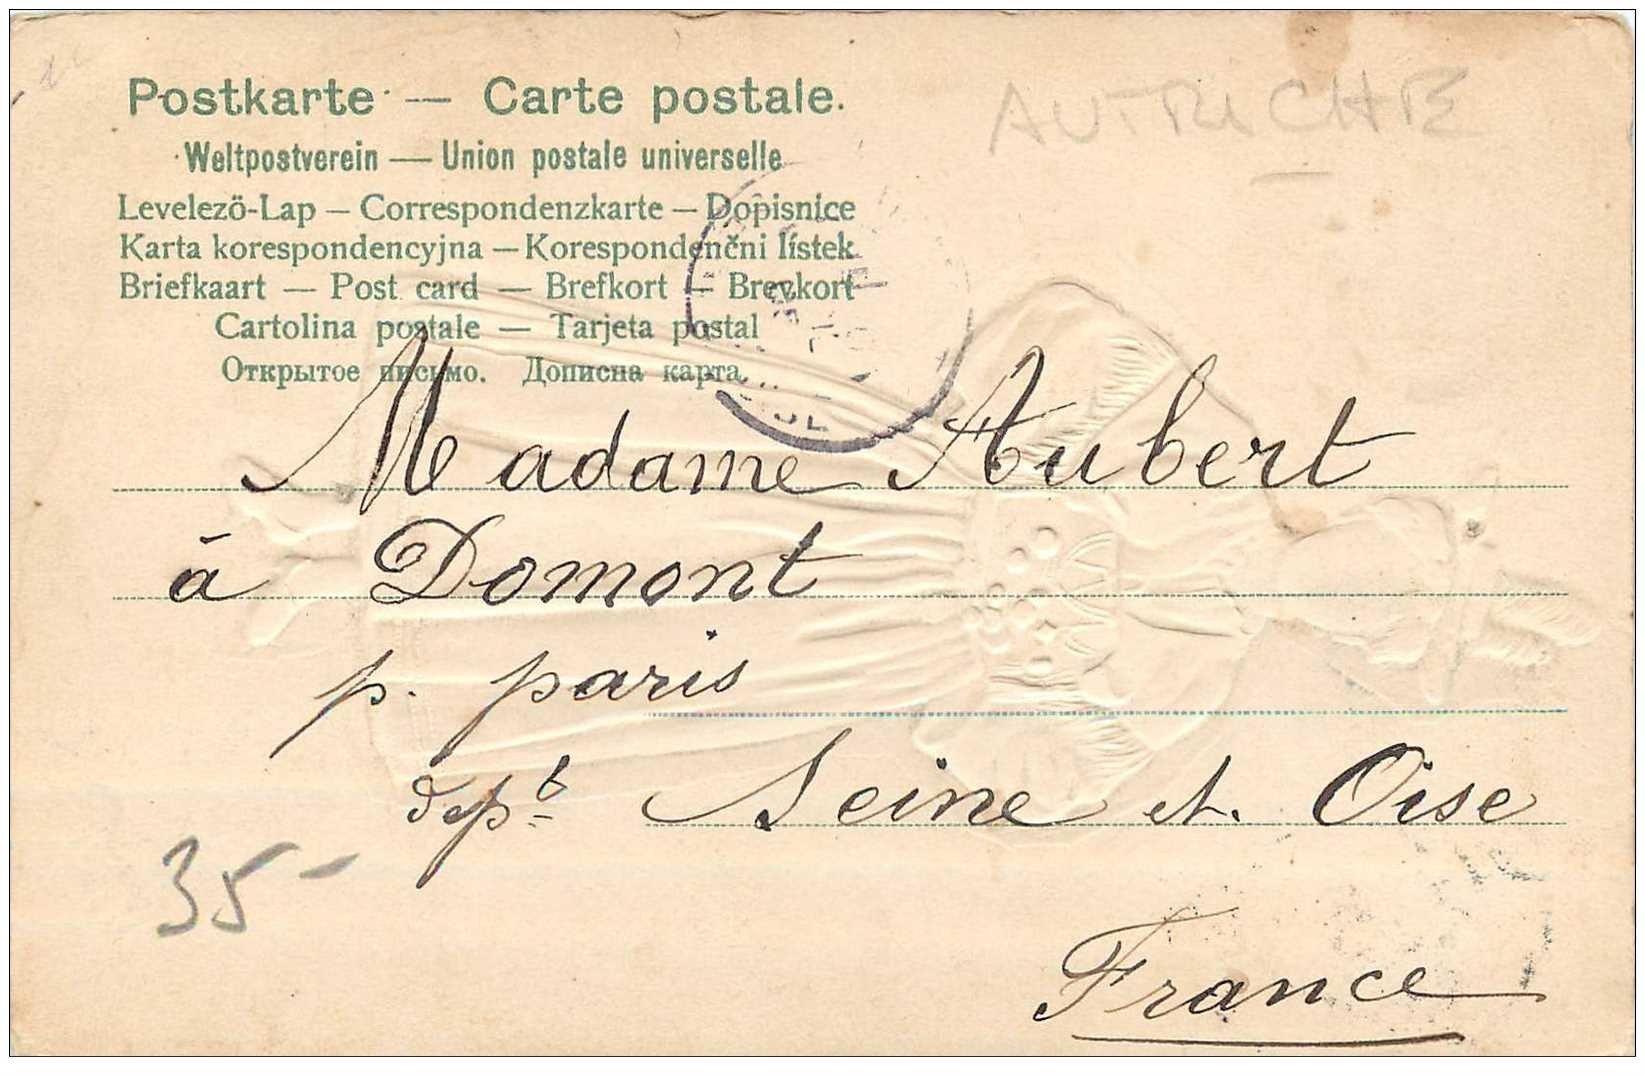 Postkarte — Carte postale.
AUTRICHE
Weltpostverein — Union postale universelle
Levelezö-Lap — Correspondenzkarte — Dopisnice
Karta korespondencyjna — Korespondenčni lístek
Briefkaart — Post card — Brefkort — Brevkort
Cartolina postale — Tarjeta postal
Открытое письмо. Дописна карта.
Madame Aubert
à Domont
p. paris
dept Seine et. Oise
35-
France